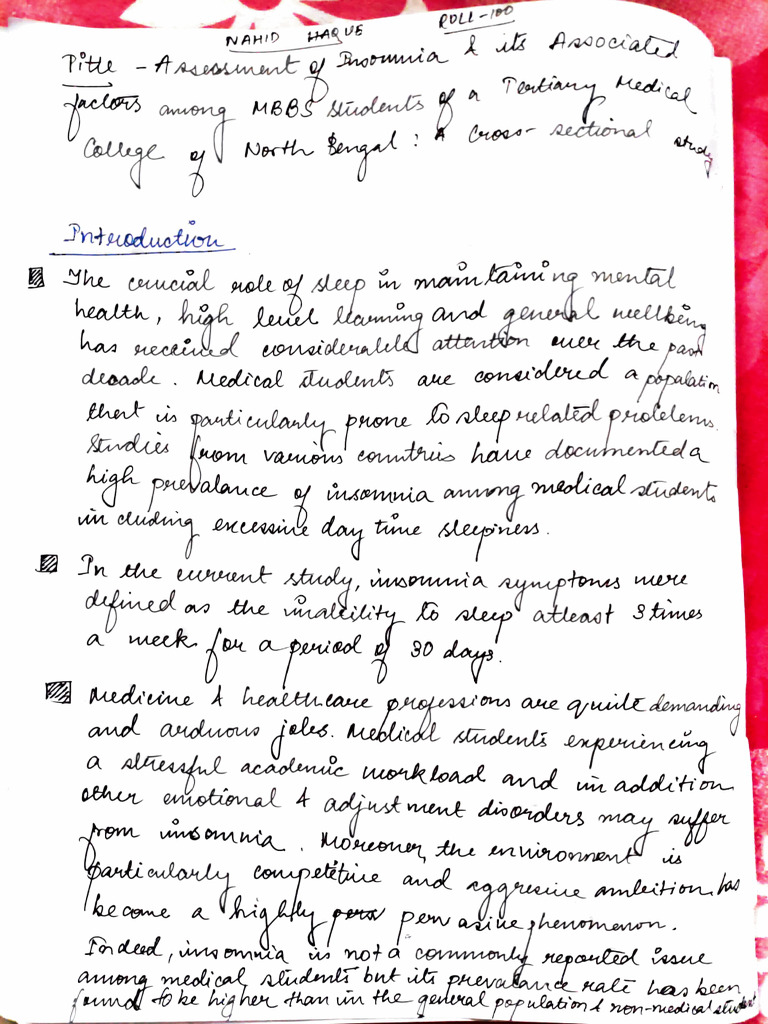 NAHID HAQUE ROLL-100
Title - Assessment of Insomnia & its Associated
factors among MBBS students of a Tertiary Medical
College of North Bengal : A Cross-sectional study
Introduction
The crucial role of sleep in maintaining mental
health, high level learning and general wellbeing
has received considerable attention over the past
decade. Medical students are considered a population
that is particularly prone to sleep related problems.
Studies from various countries have documented a
high prevalance of insomnia among medical students
including excessive day time sleepiness.
In the current study, insomnia symptoms were
defined as the inability to sleep atleast 3 times
a week for a period of 30 days.
Medicine & healthcare professions are quite demanding
and arduous jobs. Medical students experiencing
a stressful academic workload and in addition
other emotional & adjustment disorders may suffer
from insomnia. Moreover, the environment is
particularly competitive and aggresive ambition has
become a highly pervasive phenomenon.
Indeed, insomnia is not a commonly reported issue
among medical students but its prevalance rate has been
found to be higher than in the general population & non-medical student